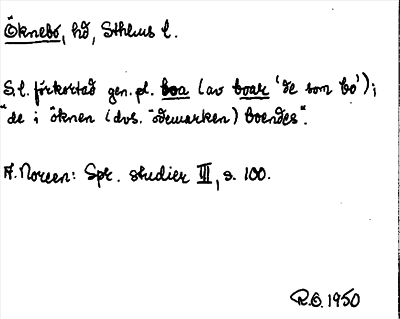 Öknebo, hd, Sthlms l.
S.l. förkortad gen. pl. boa (av boar 'de som bo');
"de i öknen (dvs. ödemarken) boendes".
A. Noreen: Spr. studier III, s. 100.
R.O. 1950